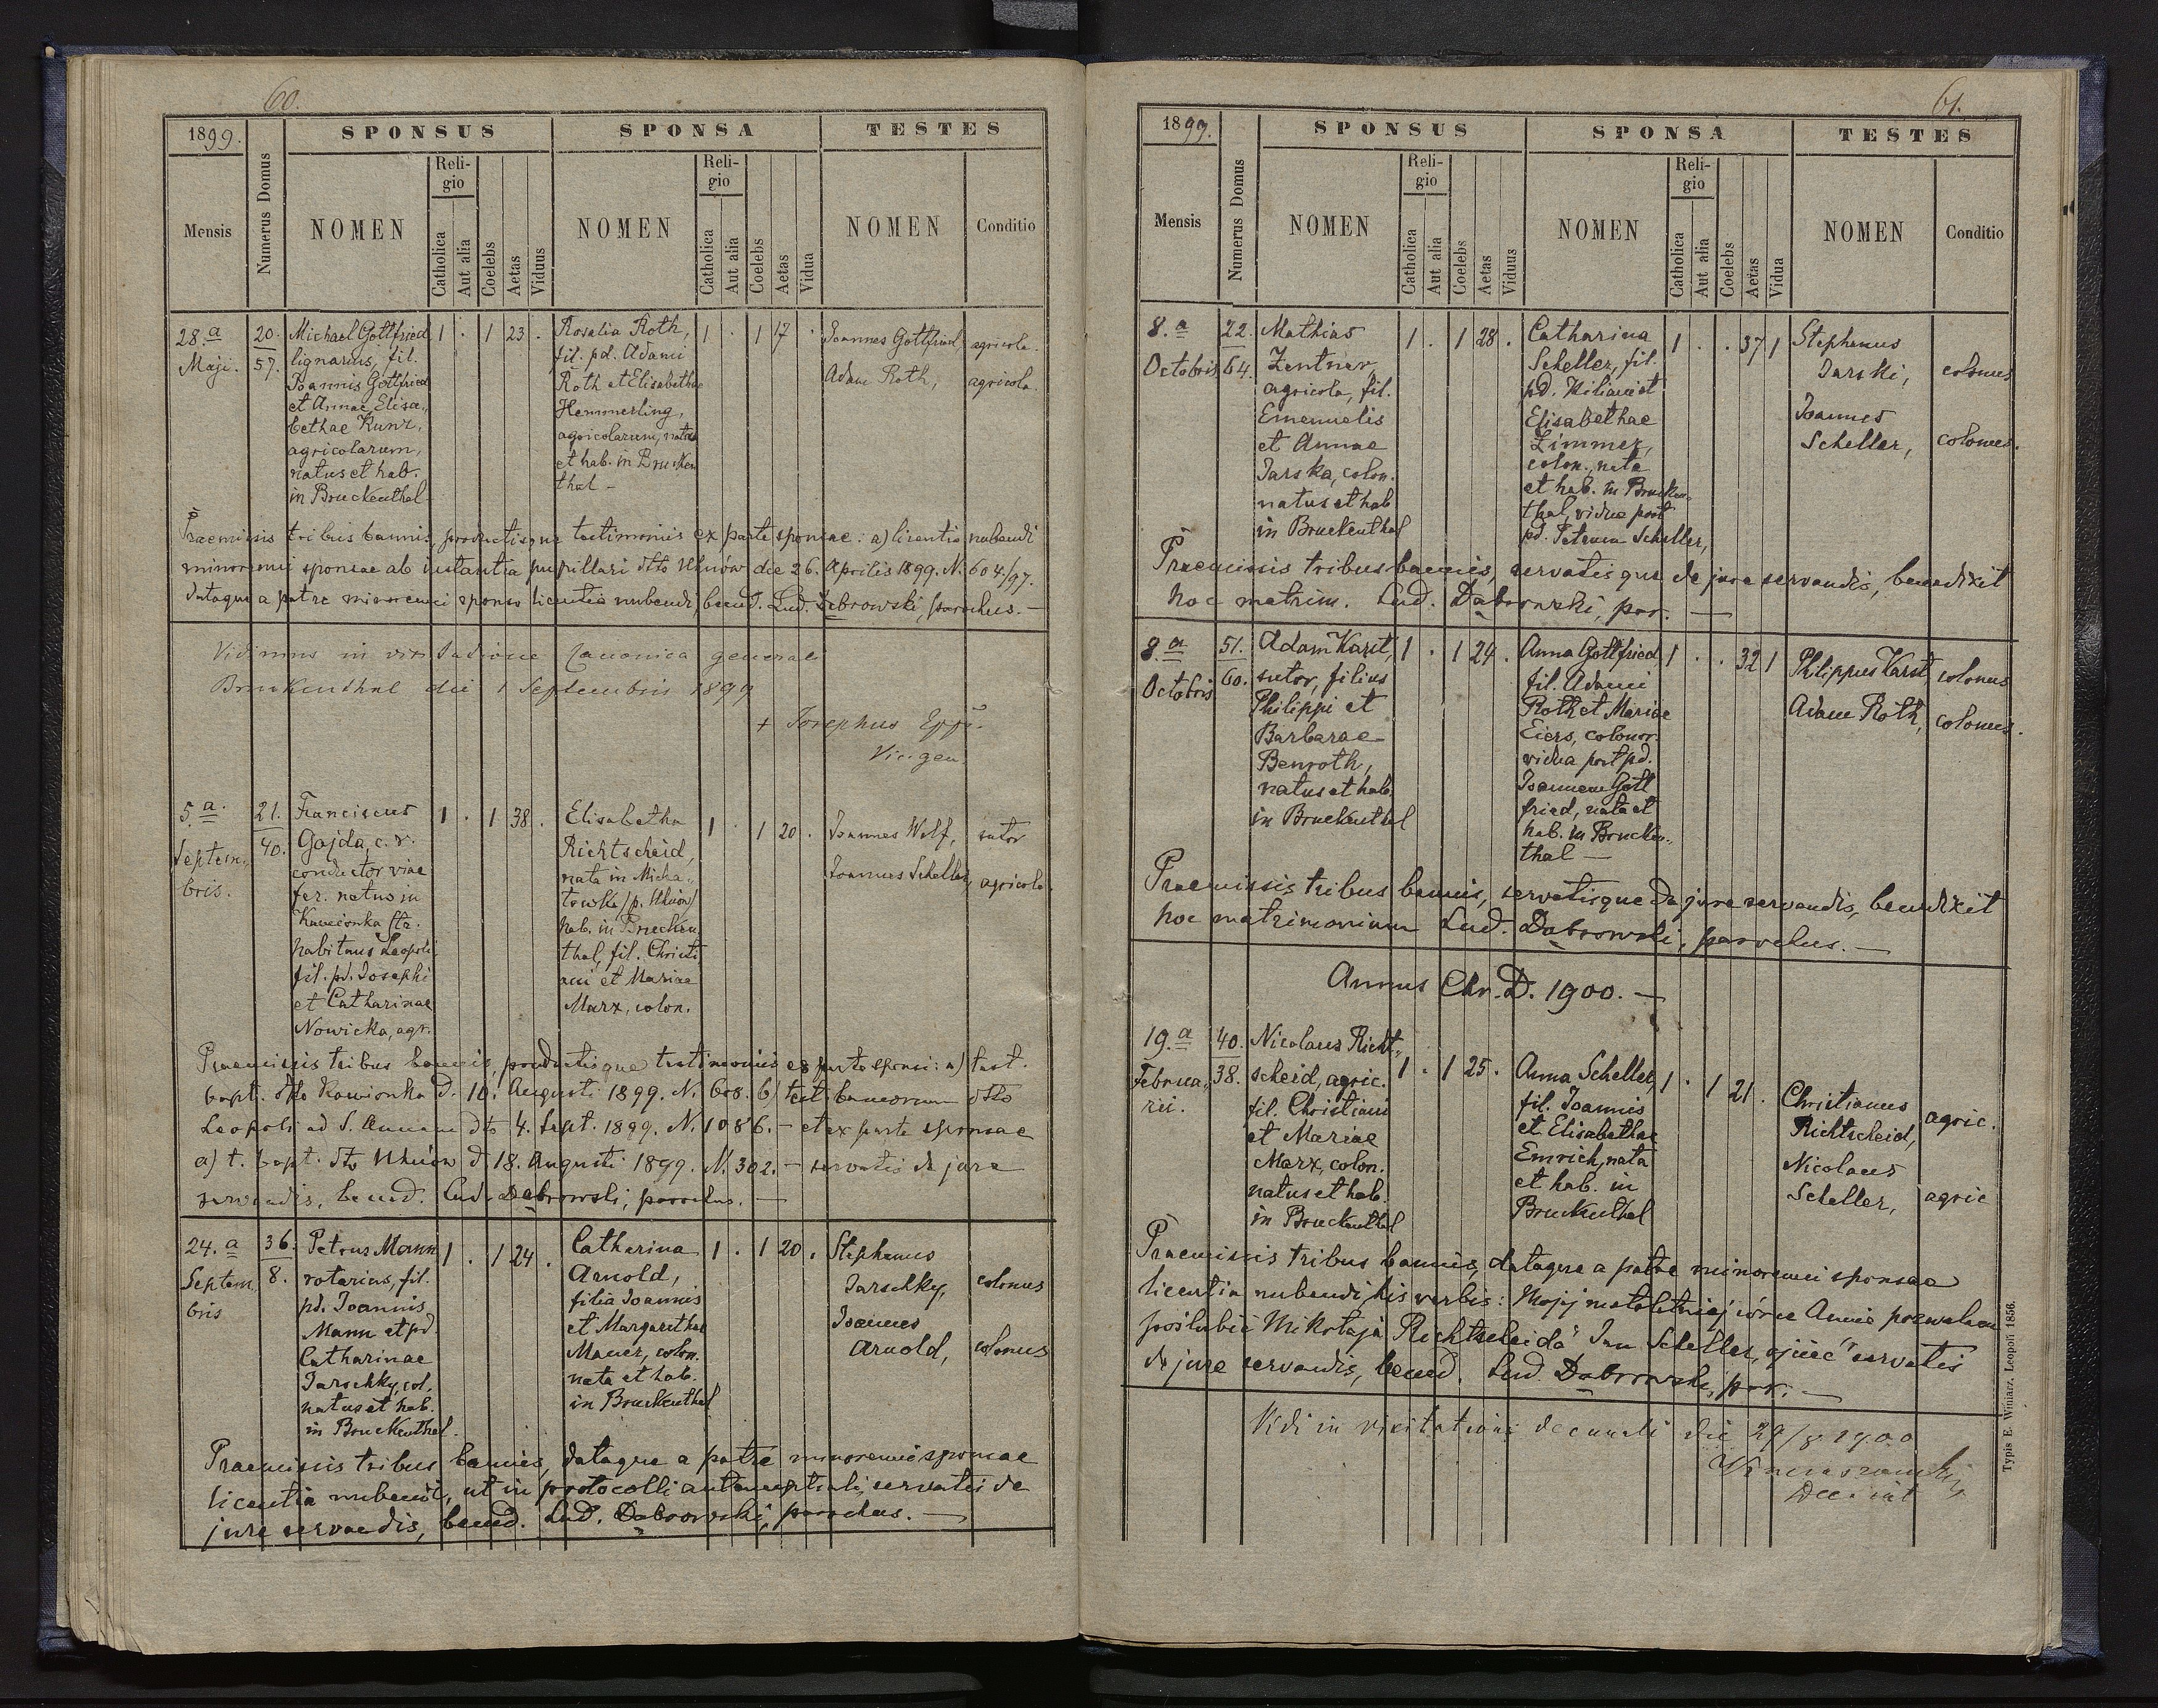 60.
1899.
SPONSUS
SPONSA
TESTES
Mensis
Numerus Domus
NOMEN
Religio
Catholica
Aut alia
Coelebs
Aetas
Viduus
NOMEN
Religio
Catholica
Aut alia
Coelebs
Aetas
Vidua
NOMEN
Conditio
28.a
Maji.
20.
57.
Michael Gottfried
lignarius, fil.
Joannis Gottfried
et Annae Elisa„
bethae Kunz,
agricolarum,
natus et hab.
in Bruckenthal
1 . 1 23 .
Rosalia Roth,
fil. pd. Adami
Roth et Elisabethae
Hemmerling,
agricolarum, nata
et hab. in Brucken
thal –
1 . 1 17 .
Joannes Gottfried agricola.
Adam Roth, agricola.
Praemissis tribus bannis, productisque testimoniis ex parte sponsae: a) licentia nubendi
minorenni sponsae ab instantia pupillari dtto Uhnów die 26. Aprilis 1899. N. 604/97.
dataque a patre minorenni sponso licentia nubendi, bened. Lud. Dąbrowski, parochus. –
Vidimus in visitatione Canonica generali
Bruckenthal die 1 Septembris 1899
+ Josephus Eppũs
Vic. gen.
5.a
Septem„
bris.
21.
40.
Franciscus
Gajda, c. r.
conductor viae
fer. natus in
Kamionka
habitans Leopoli,
fil. pd. Josephi
et Catharinae
Nowicka, agr.
1 . 1 38 .
Elisabetha
Richtscheid,
nata in Micha„
łowka (p. Uhnów)
hab. in Brucken
thal, fil. Christi
ani et Mariae
Marx, colon.
1 . 1 20 .
Joannes Wolf, sutor
Joannes Scheller, agricola.
Praemissis tribus bannis, productisque testimoniis ex parte sponsi: a) test.
bapt. dtto Kamionka d. 10. Augusti 1899. N. 608. b) test. bannorum dtto
Leopoli ad S. Annam dtto 4. Sept. 1899. N. 1086. – et ex parte sponsae
a) t. bapt. dtto Uhnów d. 18. Augusti 1899. N. 302. – servatis de jure
servandis, bened. Lud. Dąbrowski, parochus. –
24.a
Septem„
bris
36.
8.
Petrus Mann
rotarius, fil.
pd. Joannis
Mann et pd.
Catharinae
Jarschky, col.
natus et hab.
in Bruckenthal.
1 . 1 24 .
Catharina
Arnold,
filia Joannis
et Margarethae
Mauer, colon.
nata et hab.
in Bruckenthal
1 . 1 20 .
Stephanus
Jarschky, colonus
Joannes
Arnold, colonus
Praemissis tribus bannis, dataque a patre minorenni sponsae
licentia nubendi, ut in protocolli antenuptiali, servatis de
jure servandis, bened. Lud. Dąbrowski, parochus. –
61.
1899.
SPONSUS
SPONSA
TESTES
Mensis
Numerus Domus
NOMEN
Religio
Catholica
Aut alia
Coelebs
Aetas
Viduus
NOMEN
Religio
Catholica
Aut alia
Coelebs
Aetas
Vidua
NOMEN
Conditio
8.a
Octobris
22.
64.
Mathias
Zentner,
agricola, fil.
Emanuelis
et Annae
Jarska, colon.
natus et hab
in Bruckenthal
1 . 1 28 .
Catharina
Scheller, fil.
pd. Kiliani et
Elisabethae
Zimmer,
colon., nata
et hab. in Brucken„
thal, vidua post
pd. Petrum Scheller,
1 . . 37 1
Stephanus
Jarski, colonus
Joannes
Scheller, colonus.
Praemissis tribus bannis, servatisque de jure servandis, benedixit
hoc matrim. Lud. Dąbrowski, par. –
8.a
Octobris
51.
60.
Adam Karst,
sutor, filius
Philippi et
Barbarae
Benroth,
natus et hab.
in Bruckenthal
1 . 1 24 .
Anna Gottfried
fil. Adami
Roth et Mariae
Eiers, colonor.
vidua post pd.
Joannem Gott
fried, nata et
hab. in Brucken„
thal –
1 . . 32 1
Philippus Karst colonus
Adam Roth, colonus.
Praemissis tribus bannis, servatisque de jure servandis, benedixit
hoc matrimonium Lud. Dąbrowski, parochus. –
Annus Chr. D. 1900. –
19.a
Februa„
rii.
40.
38.
Nicolaus Richt„
scheid, agric.
fil. Christiani
et Mariae
Marx, colon.
natus et hab.
in Bruckenthal
1 . 1 25 .
Anna Scheller,
fil. Joannis
et Elisabethae
Emrich, nata
et hab. in
Bruckenthal
1 . 1 21 .
Christianus
Richtscheid, agric.
Nicolaus
Scheller, agric
Praemissis tribus bannis, dataque a patre minorenni sponsae
licentia nubendi his verbis: „Mojej małoletniej córce Annie pozwalam
poślubić Mikołaja Richtscheida" Jan Scheller, ojciec" servatis
de jure servandis, bened. Lud. Dąbrowski, par. –
Vidi in visitatione decanali die 29/8 1900
Typis E. Winiarz, Leopoli 1856.